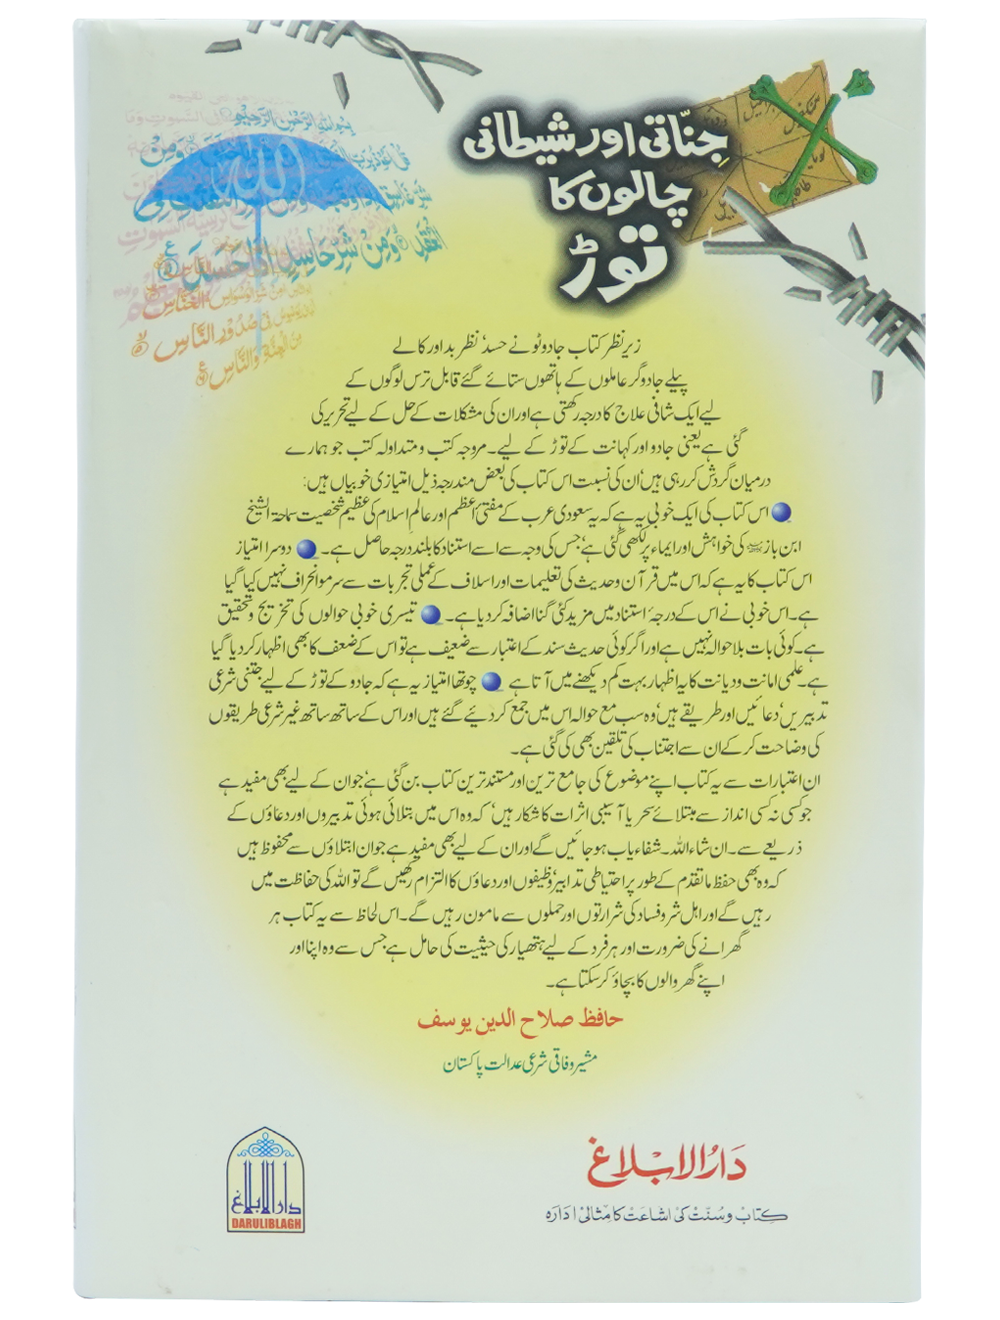 بسم اللہ الرحمن الرحیم
جنّاتی اور شیطانی
چالوں کا
توڑ
اللہ
وَمِنْ شَرِّ حَاسِدٍ اِذَا حَسَدَ
الْخَنَّاسِ
فِیْ صُدُوْرِ النَّاسِ
مِنَ الْجِنَّةِ وَالنَّاسِ
زیر نظر کتاب جادو ٹونے حسد، نظر بد اور کالے
پیلے جادوگر عاملوں کے ہاتھوں ستائے گئے قابل ترس لوگوں کے
لیے ایک شافی علاج کا درجہ رکھتی ہے اور ان کی مشکلات کے حل کے لیے تحریر کی
گئی ہے یعنی جادو اور کہانت کے توڑ کے لیے۔ مروجہ کتب و متداولہ کتب جو ہمارے
درمیان گردش کر رہی ہیں، اُن کی نسبت اس کتاب کی بعض مندرجہ ذیل امتیازی خوبیاں ہیں:
اس کتاب کی ایک خوبی یہ ہے کہ یہ سعودی عرب کے مفتیٔ اعظم اور عالمِ اسلام کی عظیم شخصیت سماحۃ الشیخ
ابن باز کی خواہش اور ایماء پر لکھی گئی ہے، جس کی وجہ سے اسے استناد کا بلند درجہ حاصل ہے۔ دوسرا امتیاز
اس کتاب کا یہ ہے کہ اس میں قرآن و حدیث کی تعلیمات اور اسلاف کے عملی تجربات سے سرمو انحراف نہیں کیا گیا
ہے۔ اس خوبی نے اس کے درجۂ استناد میں مزید کئی گنا اضافہ کر دیا ہے۔ تیسری خوبی حوالوں کی تخریج و تحقیق
ہے۔ کوئی بات بلا حوالہ نہیں ہے اور اگر کوئی حدیث سند کے اعتبار سے ضعیف ہے تو اس کے ضعف کا بھی اظہار کر دیا گیا
ہے۔ علمی امانت و دیانت کا یہ اظہار بہت کم دیکھنے میں آتا ہے چوتھا امتیاز یہ ہے کہ جادو کے توڑ کے لیے جتنی شرعی
تدبیریں، دعائیں اور طریقے ہیں، وہ سب مع حوالہ اس میں جمع کر دیئے گئے ہیں اور اس کے ساتھ ساتھ غیر شرعی طریقوں
کی وضاحت کر کے ان سے اجتناب کی تلقین بھی کی گئی ہے۔
ان اعتبارات سے یہ کتاب اپنے موضوع کی جامع ترین اور مستند ترین کتاب بن گئی ہے، جو ان کے لیے بھی مفید ہے
جو کسی نہ کسی انداز سے مبتلائے سحر یا آسیبی اثرات کا شکار ہیں، کہ وہ اس میں بتلائی ہوئی تدبیروں اور دعاؤں کے
ذریعے سے۔ ان شاء اللہ۔ شفاء یاب ہو جائیں گے اور ان کے لیے بھی مفید ہے جو ان ابتلاؤں سے محفوظ ہیں
کہ وہ بھی حفظ ما تقدم کے طور پر احتیاطی تدابیر، وظیفوں اور دعاؤں کا التزام رکھیں گے تو اللہ کی حفاظت میں
رہیں گے اور اہل شر و فساد کی شرارتوں اور حملوں سے مامون رہیں گے۔ اس لحاظ سے یہ کتاب ہر
گھرانے کی ضرورت اور ہر فرد کے لیے ہتھیار کی حیثیت کی حامل ہے جس سے وہ اپنا اور
اپنے گھر والوں کا بچاؤ کر سکتا ہے۔
حافظ صلاح الدین یوسف
مشیر وفاقی شرعی عدالت پاکستان
دَارُالابلاغ
کتاب وسنت کی اشاعت کا مثالی ادارہ
دارالابلاغ
DARULIBLAGH